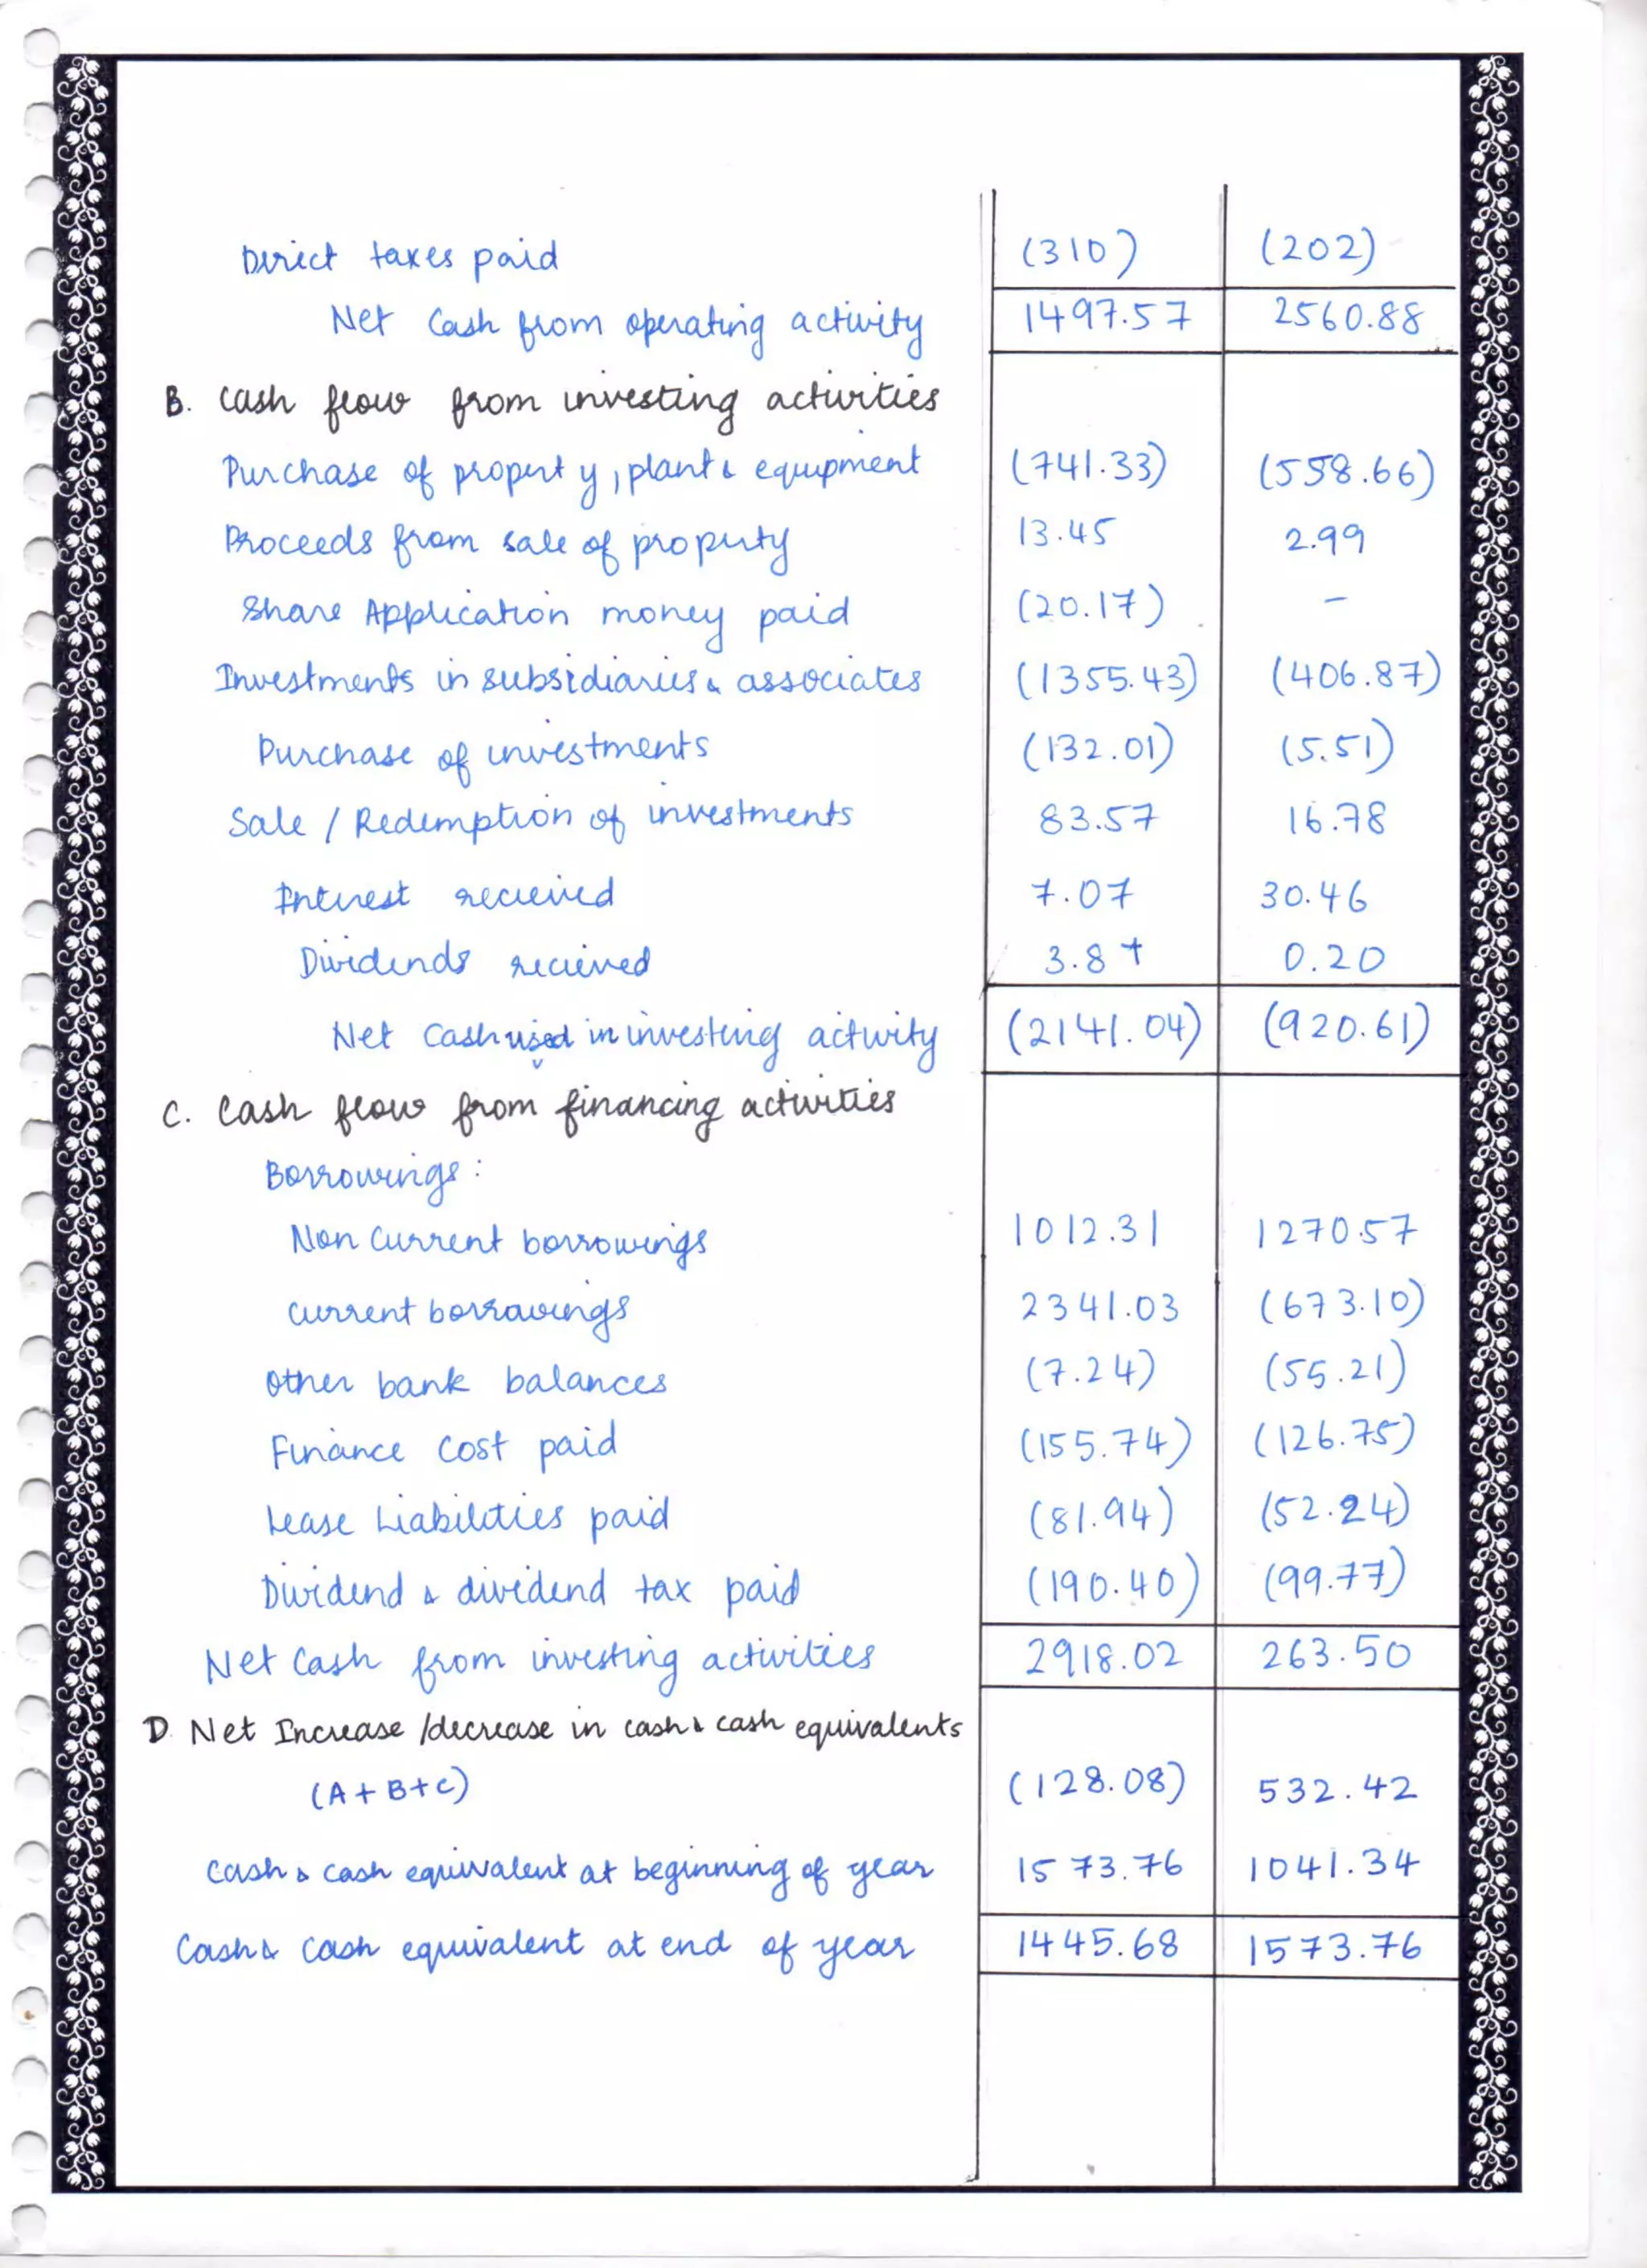 Direct taxes paid (310) (202)
Net Cash from operating activity 1497.57 2560.88
B. Cash flow from investing activities
Purchase of property, plant & equipment (741.33) (558.66)
Proceeds from sale of property 13.45 2.99
Share Application money paid (20.17) -
Investments in subsidiaries & associates (1355.43) (406.87)
Purchase of investments (132.01) (5.51)
Sale / Redemption of investments 83.57 16.78
Interest recieved 7.07 30.46
Dividends recieved 3.87 0.20
Net Cash used in investing activity (2141.04) (920.61)
C. Cash flow from financing activities
Borrowings :
Non Current borrowings 1012.31 1270.57
Current borrowings 2341.03 (673.10)
Other bank balances (7.24) (55.21)
Finance Cost paid (155.74) (126.75)
Lease Liabilities paid (81.94) (52.24)
Dividend & dividend tax paid (190.40) (99.77)
Net Cash from investing activities 2918.02 263.50
D. Net Increase / decrease in cash & cash equivalents
(A + B + C) (128.08) 532.42
Cash & cash equivalent at beginning of year 1573.76 1041.34
Cash & Cash equivalent at end of year 1445.68 1573.76